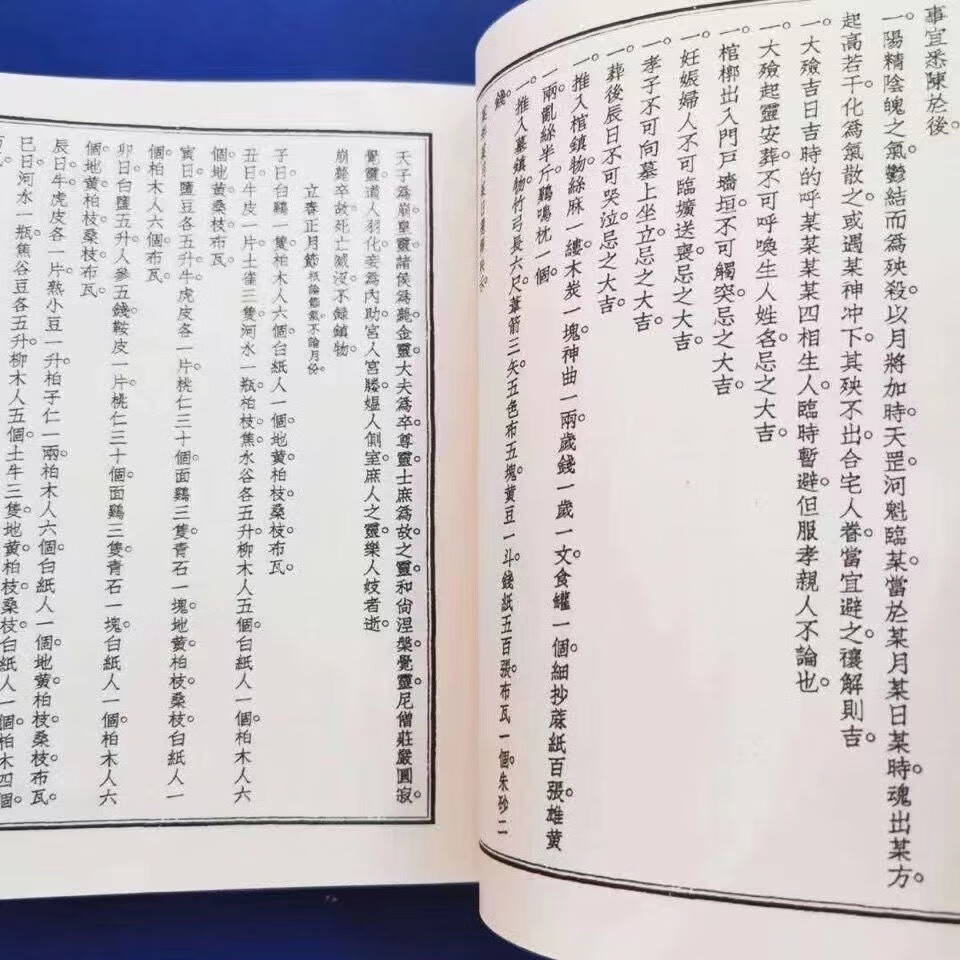 事宜悉陳於後。
一陽精陰魄之氣鬱結而為殃殺以月將加時天罡河魁臨某當於某月某日某時魂出某方
起高若干化為氣散之或遇某神冲下其殃不出合宅人眷當宜避之禳解則吉。
一大殮吉日吉時的呼某某某某四相生人臨時暫避但服孝親人不論也。
一大殮起靈安葬不可呼喚生人姓名忌之大吉。
一棺槨出入門戸墻垣不可觸突忌之大吉。
一妊娠婦人不可臨壙送喪忌之大吉。
一孝子不可向墓上坐立忌之大吉。
一葬後辰日不可哭泣忌之大吉。
一推入棺鎮物絲麻一縷木炭一塊神曲一兩歲錢一歲一文食罐一個細抄蔴紙百張雄黄
一兩亂絲半斤鷄鳴枕一個。
一推入墓鎮物竹弓長六尺葦箭三矢五色布五塊黄豆一斗錢紙五百張布瓦一個朱砂二
錢。
天子為崩皇靈諸侯為薨金靈大夫為卒尊靈士庶為故之靈和尙涅槃覺靈尼僧莊嚴圓寂
覺靈道人羽化妾為内助宮人宮媵媼人側室庶人之靈樂人妓者逝
崩薨卒故死亡滅沒不録鎮物
立春正月節祇論節氣不論月份
子日白鷄一隻柏木人六個白紙人一個地黄柏枝桑枝布瓦。
丑日牛皮一片土雀三隻河水一瓶柏枝焦水谷各五升柳木人五個白紙人一個柏木人六
個地黄柏枝桑枝布瓦。
寅日鹽豆各五升牛虎皮各一片桃仁三十個面鷄三隻青石一塊地黄柏枝桑枝白紙人一
個柏木人六個布瓦。
卯日白鹽五升人參五錢鞍皮一片桃仁三十個面鷄三隻青石一塊白紙人一個柏木人六
個地黄柏枝桑枝布瓦。
辰日牛虎皮各一片熟小豆一升柏子仁一兩柏木人六個白紙人一個地黄柏枝桑枝布瓦。
巳日河水一瓶焦谷豆各五升柳木人五個土牛二隻地黄柏枝桑枝白紙人一個柏木四個
布瓦。